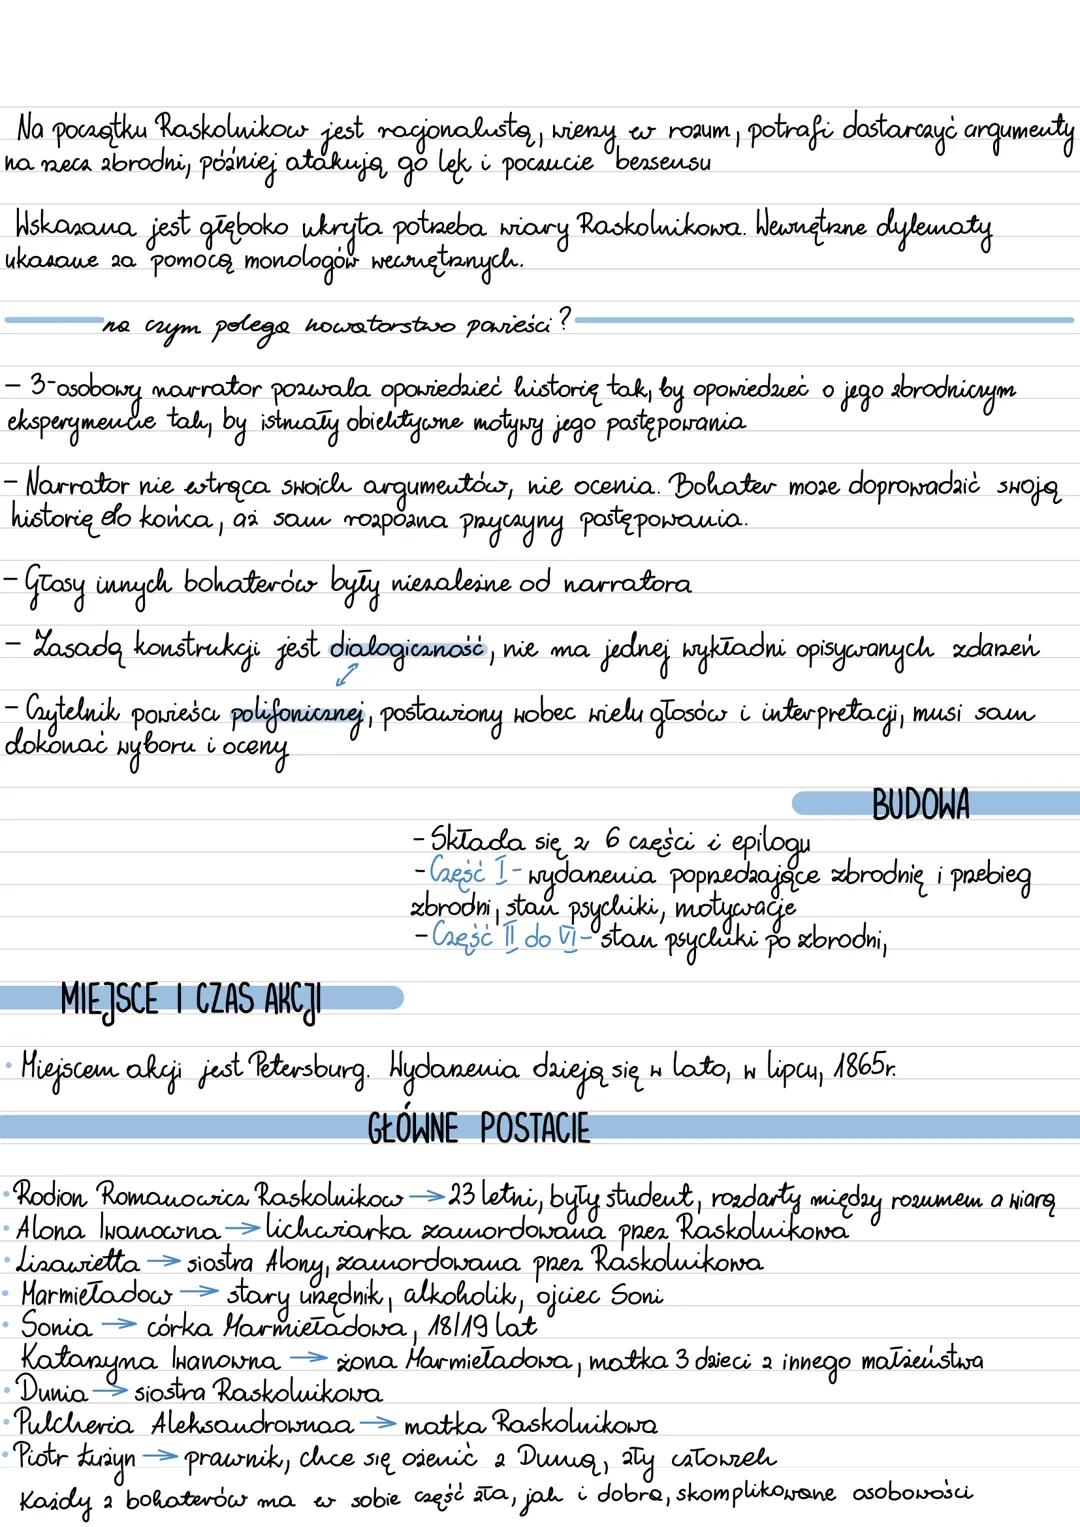 Na początku Raskolnikow jest racjonalistą, wierzy w rozum, potrafi dostarczyć argumenty
na rzecz zbrodni, później atakują go lęk i poczucie bezsensu
Wskazana jest głęboko ukryta potrzeba wiary Raskolnikowa. Wewnętrzne dylematy
ukazane za pomocą monologów wewnętrznych.
na czym polega nowatorstwo powieści?
- 3-osobowy narrator pozwala opowiedzieć historię tak, by opowiedzieć o jego zbrodniczym
eksperymencie tak, by istniały obiektywne motywy jego postępowania
- Narrator nie wtrąca swoich argumentów, nie ocenia. Bohater może doprowadzić swoją
historię do końca, aż sam rozpozna przyczyny postępowania.
- Głosy innych bohaterów były niezależne od narratora
- Zasadą konstrukcji jest dialogiczność, nie ma jednej wykładni opisywanych zdarzeń
- Czytelnik powieści polifonicznej, postawiony wobec wielu głosów i interpretacji, musi sam
dokonać wyboru i oceny
BUDOWA
- Składa się z 6 części i epilogu
- Część I - wydarzenia poprzedzające zbrodnię i przebieg
zbrodni, stan psychiki, motywacje
- Część II do VI - stan psychiki po zbrodni,
MIEJSCE I CZAS AKCJI
• Miejscem akcji jest Petersburg. Wydarzenia dzieją się w lato, w lipcu, 1865r.
GŁÓWNE POSTACIE
• Rodion Romanowicz Raskolnikow → 23 letni, były student, rozdarty między rozumem a wiarą
• Alona Iwanowna → lichwiarka zamordowana przez Raskolnikowa
• Lizawietta → siostra Alony, zamordowana przez Raskolnikowa
• Marmieładow → stary urzędnik, alkoholik, ojciec Soni
• Sonia → córka Marmieładowa, 18/19 lat
Katarzyna Iwanowna → żona Marmieładowa, matka 3 dzieci z innego małżeństwa
• Dunia → siostra Raskolnikowa
• Pulcheria Aleksandrownaa → matka Raskolnikowa
• Piotr Łużyn → prawnik, chce się ożenić z Dunią, zły człowiek
Każdy z bohaterów ma w sobie część zła, jak i dobra, skomplikowane osobowości